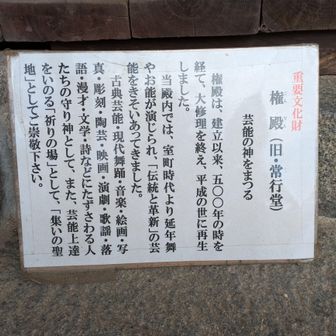 重要文化財
権殿（旧・常行堂）
芸能の神をまつる
権殿は、建立以来、五〇〇年の時を
経て、大修理を終え、平成の世に再生
しました。
当殿内では、室町時代より延年舞
やお能が演じられ、「伝統と革新」の芸
能をきそいあってきました。
古典芸能・現代舞踊・音楽・絵画・写
真・彫刻・陶芸・映画・演劇・歌謡・落
語・漫才・文学・詩などにたずさわる人
たちの守り神として、また、芸能上達
をいのる「祈りの場」として、「集いの聖
地」としてご崇敬下さい。